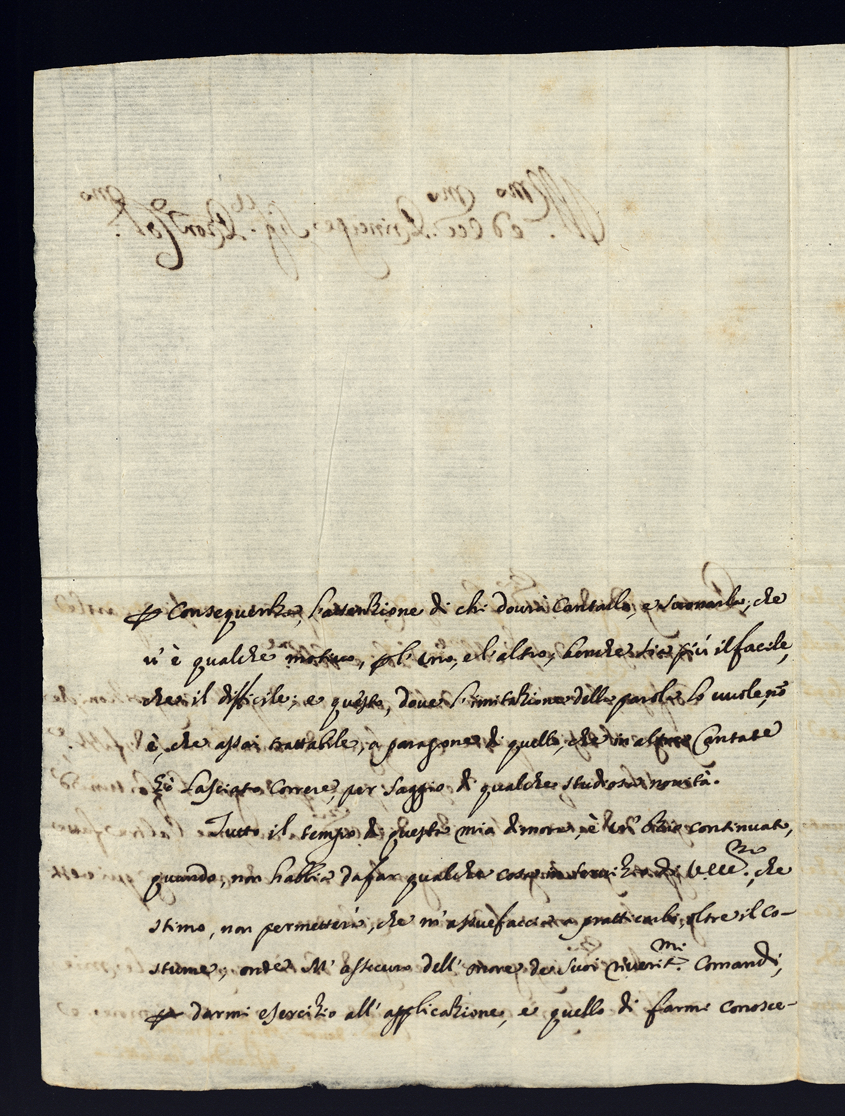 Ill.mo ed Ecc.mo Principe Sig.re e Pron Col.mo
p Consequenza, l'attenzione di chi dourà Cantalle, e Suonarle, che
u'è qualche motiuo, p l'uno, e l'altro, benche sia più il facile,
che il difficile; e questo, doue l'imitazione delle parole lo uuole, nō
è, che assai trattabile, a paragone di quello, che in altre Cantate
hò Lasciato Correre, per Saggio di qualche studiosa nouità.
Tutto il tempo di questa mia dimora, è un' Ozio continuato,
quando, non habbia dafar qualche cosa in seruizio di V. ecc.za, che
stimo, non permetterà, che m'assuefaccia a pratticarlo, oltre il co-
stume, onde M' assicuro dell' onore de Suoi riuerit.mi Comandi,
p darmi esercizio all' applicazione, e quello di farmi conosce-